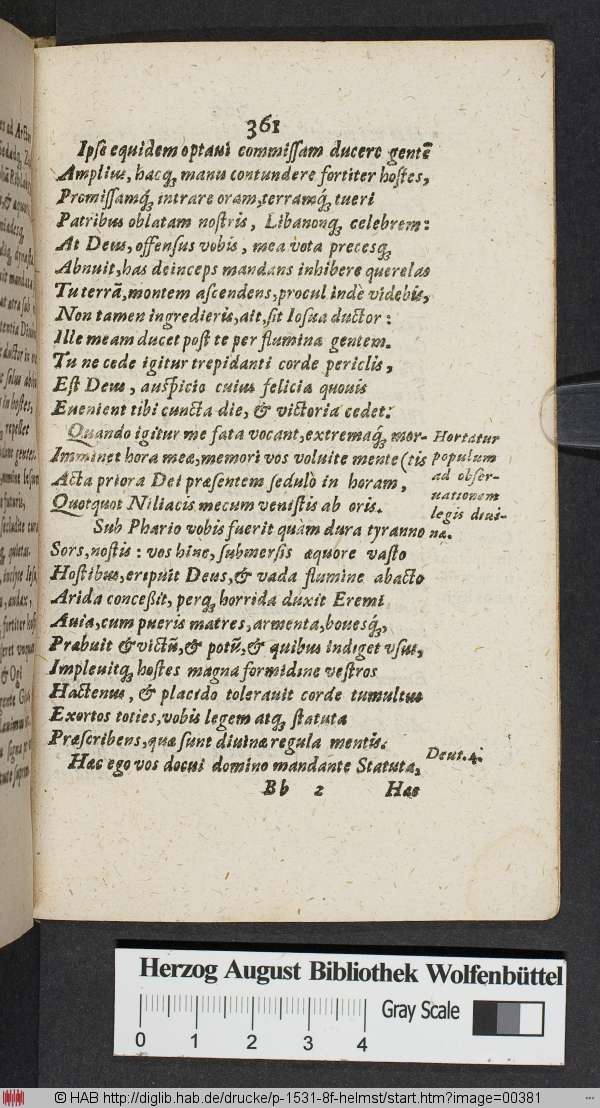 361
Ipse equidem optaui commissam ducere gentē
Amplius, hacq́ꝫ manu contundere fortiter hostes,
Promissamq́ꝫ intrare oram, terramq́ꝫ tueri
Patribus oblatam nostris, Libanonq́ꝫ celebrem:
At Deus, offensus vobis, mea vota precesq́ꝫ
Abnuit, has deinceps mandans inhibere querelas
Tu terrā, montem ascendens, procul indè videbis,
Non tamen ingredieris, ait, sit Iosua ductor:
Ille meam ducet post te per flumina gentem.
Tu ne cede igitur trepidanti corde periclis,
Est Deus, auspicio cuius felicia quouis
Euenient tibi cuncta die, & victoria cedet.
Quando igitur me fata vocant, extremaq́ꝫ mor-
Imminet hora meæ, memori vos voluite mente (tis
Acta priora Dei præsentem sedulò in horam,
Quotquot Niliacis mecum venistis ab oris.
Hortatur
populum
ad obser-
uationem
legis diui-
næ.
Sub Phario vobis fuerit quàm dura tyranno
Sors, nostis: vos hinc, submersis æquore vasto
Hostibus, eripuit Deus, & vada flumine abacto
Arida conceßit, perq́ꝫ horrida duxit Eremi
Auia, cum pueris matres, armenta, bouesq́ꝫ,
Præbuit & victū, & potū, & quibus indiget vsus,
Impleuitq́ꝫ hostes magna formidine vestros
Hactenus, & placido tolerauit corde tumultus
Exortos toties, vobis legem atq́ꝫ statuta
Præscribens, quæ sunt diuinæ regula mentis.
Hæc ego vos docui domino mandante Statuta,
Deut. 4.
Bb 2 Hæc
Herzog August Bibliothek Wolfenbüttel
Gray Scale
0 1 2 3 4
© HAB http://diglib.hab.de/drucke/p-1531-8f-helmst/start.htm?image=00381